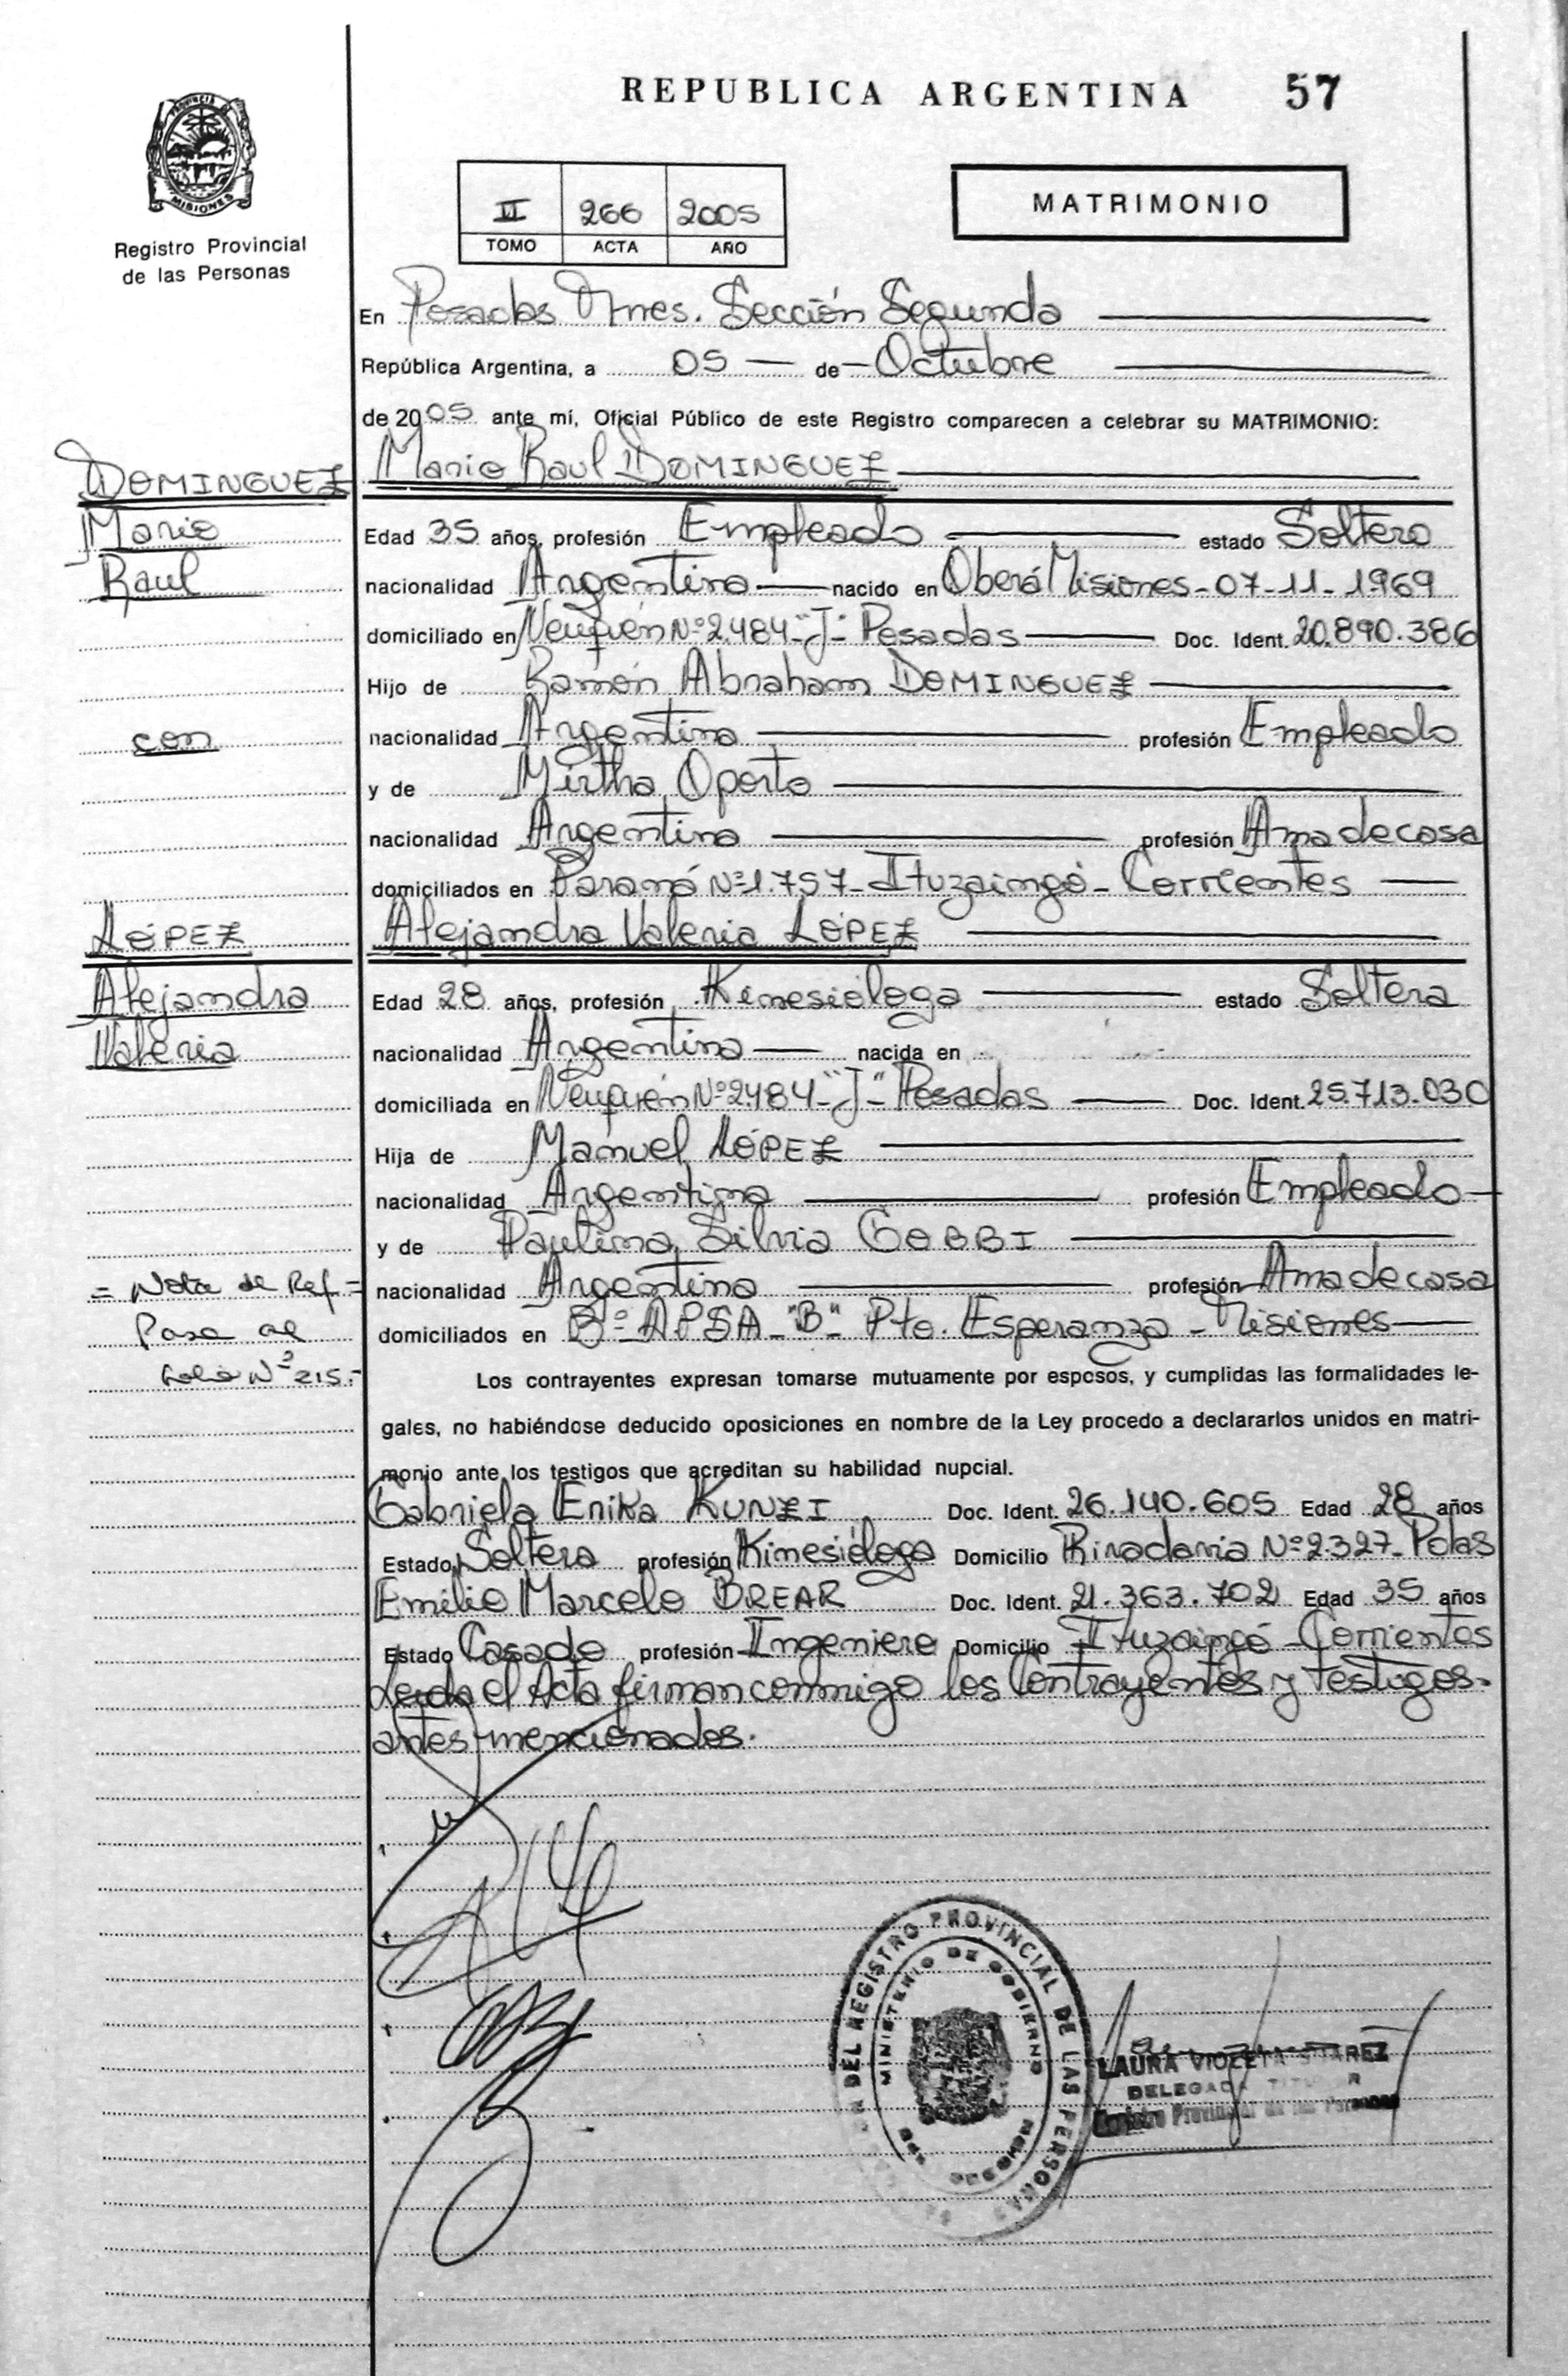 REPUBLICA ARGENTINA 57
PROVINCIA DE
MISIONES
Registro Provincial
de las Personas
II 266 2005
TOMO ACTA AÑO
MATRIMONIO
En Posadas Mnes. Sección Segunda
República Argentina, a 05 de Octubre
de 2005 ante mí, Oficial Público de este Registro comparecen a celebrar su MATRIMONIO:
DOMINGUEZ Mario Raul DOMINGUEZ
Mario Edad 35 años, profesión Empleado estado Soltero
Raul nacionalidad Argentina nacido en Oberá Misiones-07-11-1969
domiciliado en Neuquén Nº 2.484-"J"- Posadas Doc. Ident. 20.890.386
Hijo de Ramón Abraham DOMINGUEZ
con nacionalidad Argentina profesión Empleado
y de Mirtha Oporto
nacionalidad Argentina profesión Ama de casa
domiciliados en Paraná Nº 1.757- Ituzaingó- Corrientes
LÓPEZ Alejandra Valeria LÓPEZ
Alejandra Edad 28 años, profesión Kinesióloga estado Soltera
Valeria nacionalidad Argentina nacida en
domiciliada en Neuquén Nº 2484-"J"- Posadas Doc. Ident. 25.713.030
Hija de Manuel LÓPEZ
nacionalidad Argentina profesión Empleado
y de Paulina Silvia GOBBI
= Nota de Ref = nacionalidad Argentina profesión Ama de casa
Pasa al domiciliados en Bº- APSA-"B" Pto. Esperanza - Misiones
folio Nº 215.- Los contrayentes expresan tomarse mutuamente por esposos, y cumplidas las formalidades le-
gales, no habiéndose deducido oposiciones en nombre de la Ley procedo a declararlos unidos en matri-
monio ante los testigos que acreditan su habilidad nupcial.
Gabriela Erika KUNZI Doc. Ident. 26.140.605 Edad 28 años
Estado Soltera profesión Kinesióloga Domicilio Rivadavia Nº 2.327- Pdas
Emilio Marcelo BREAR Doc. Ident. 21.363.702 Edad 35 años
Estado Casado profesión Ingeniero Domicilio Ituzaingó - Corrientes
Leida el Acta firman conmigo los Contrayentes y testigos
antes mencionados.
DEL REGISTRO PROVINCIAL DE LAS PERSONAS
MINISTERIO DE GOBIERNO
LAURA VIOLETA SUAREZ
DELEGADA TITULAR
Registro Provincial de las Personas